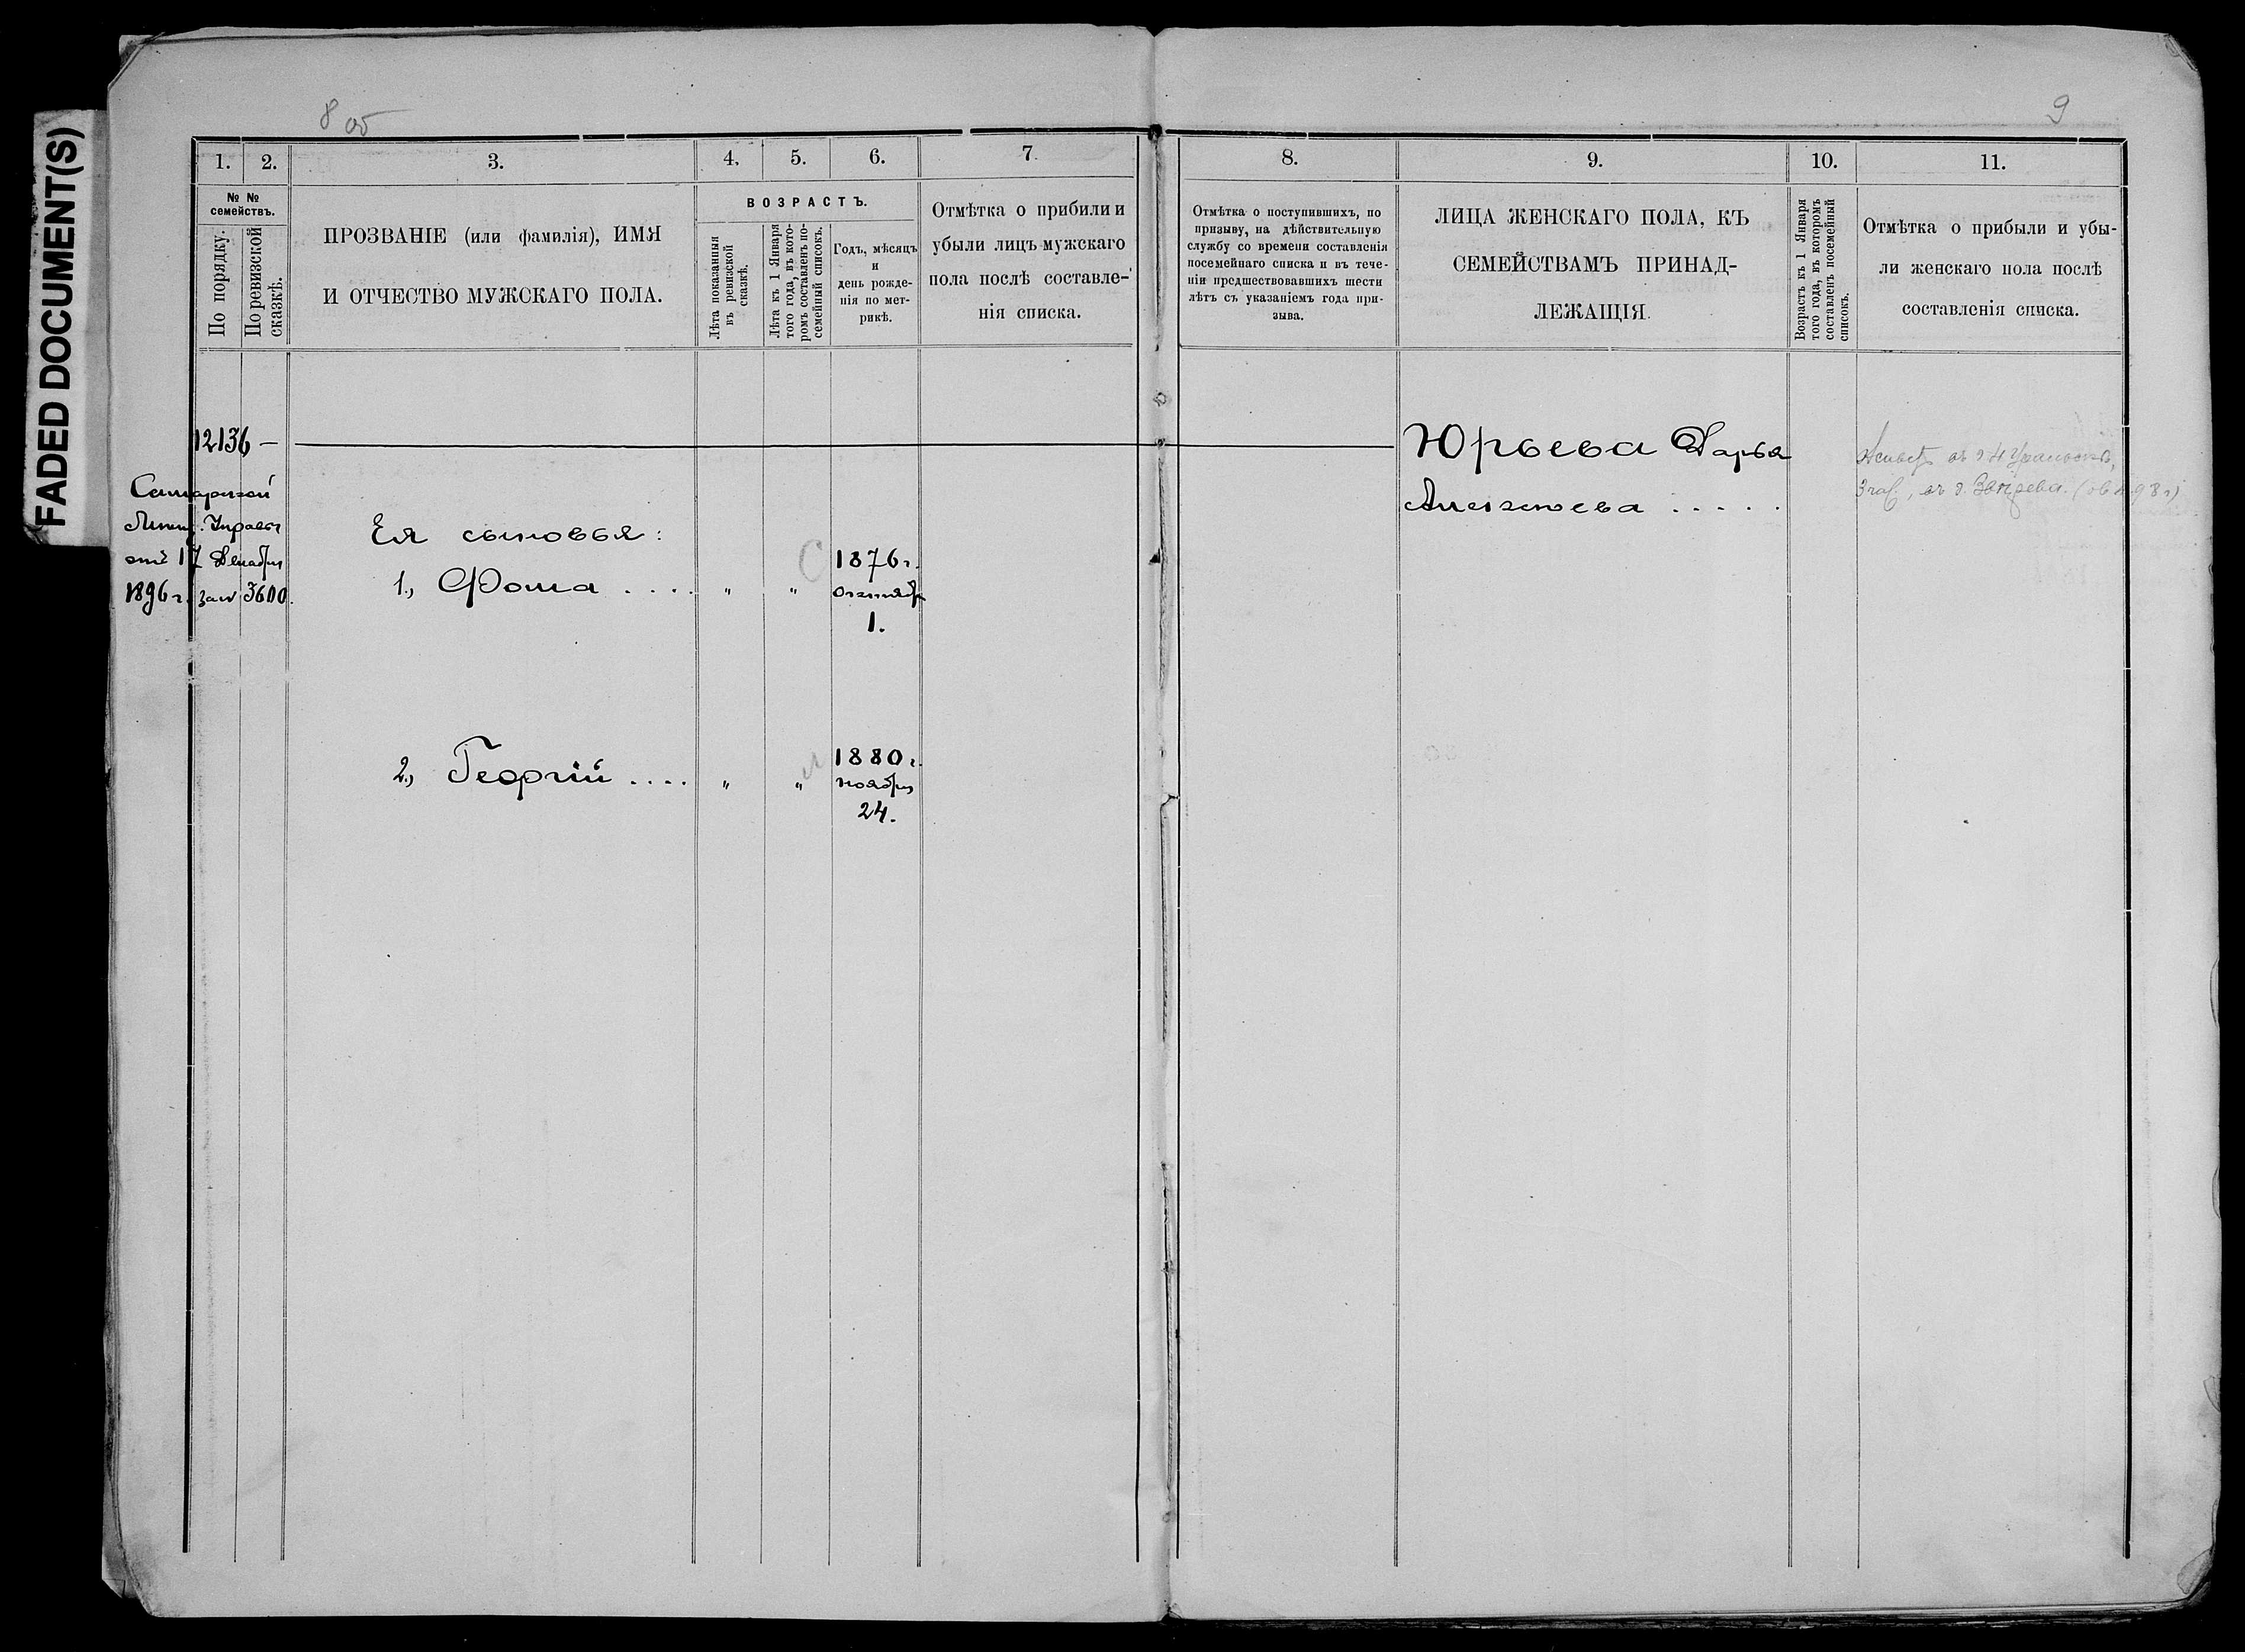 FADED DOCUMENT(S)
8 об
9
1.
2.
3.
4.
5.
6.
7.
8.
9.
10.
11.
№ №
семействъ.
По порядку.
По ревизской
сказкѣ.
ПРОЗВАНІЕ (или фамилія), ИМЯ
И ОТЧЕСТВО МУЖСКАГО ПОЛА.
ВОЗРАСТЪ.
Лѣта показанія
въ ревизской
сказкѣ.
Лѣта къ 1 Января
того года, въ кото-
ромъ составленъ по-
семейный списокъ.
Годъ, мѣсяцъ
и
день рожде-
нія по мет-
рикѣ.
Отмѣтка о прибили и
убыли лицъ мужскаго
пола послѣ составле-
нія списка.
Отмѣтка о поступившихъ, по
призыву, на дѣйствительную
службу со времени составленія
посемейнаго списка и въ тече-
ніи предшествовавшихъ шести
лѣтъ съ указаніемъ года при-
зыва.
ЛИЦА ЖЕНСКАГО ПОЛА, КЪ
СЕМЕЙСТВАМЪ ПРИНАД-
ЛЕЖАЩІЯ.
Возрастъ къ 1 Января
того года, въ которомъ
составленъ посемейный
списокъ.
Отмѣтка о прибыли и убы-
ли женскаго пола послѣ
составленія списка.
12136 —
Самарской
Мѣщ. Управы
отъ 17 Декабря
1896 г. за № 3600.
Юрьева Дарья
Алексѣева . . . . .
Ея сыновья:
1., Фома . . . . " " С
1876 г.
октября
1.
2., Георгій . . . . " "
1880 г.
ноября
24.